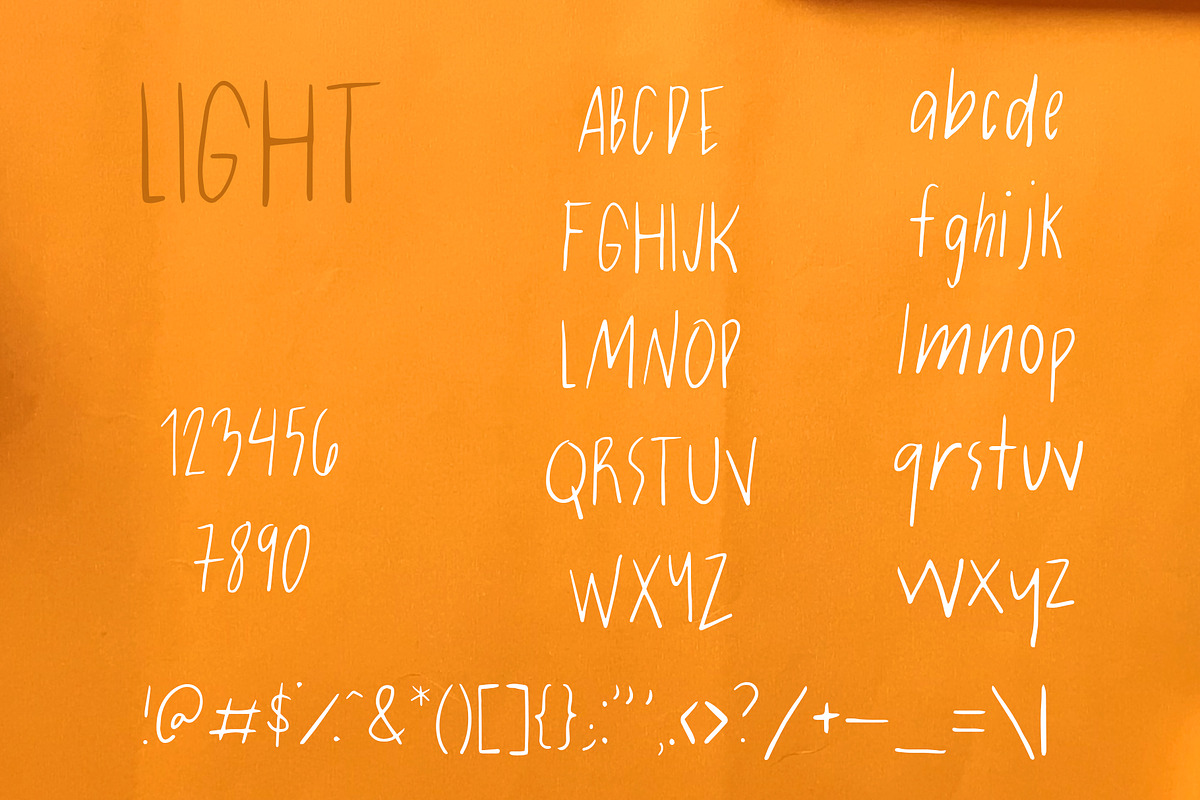 LIGHT
123456
7890
ABCDE
FGHIJK
LMNOP
QRSTUV
WXYZ
abcde
fghijk
lmnop
qrstuv
wxyz
!@#$%^&*()[]{};:"',.<>?/+-_=\|